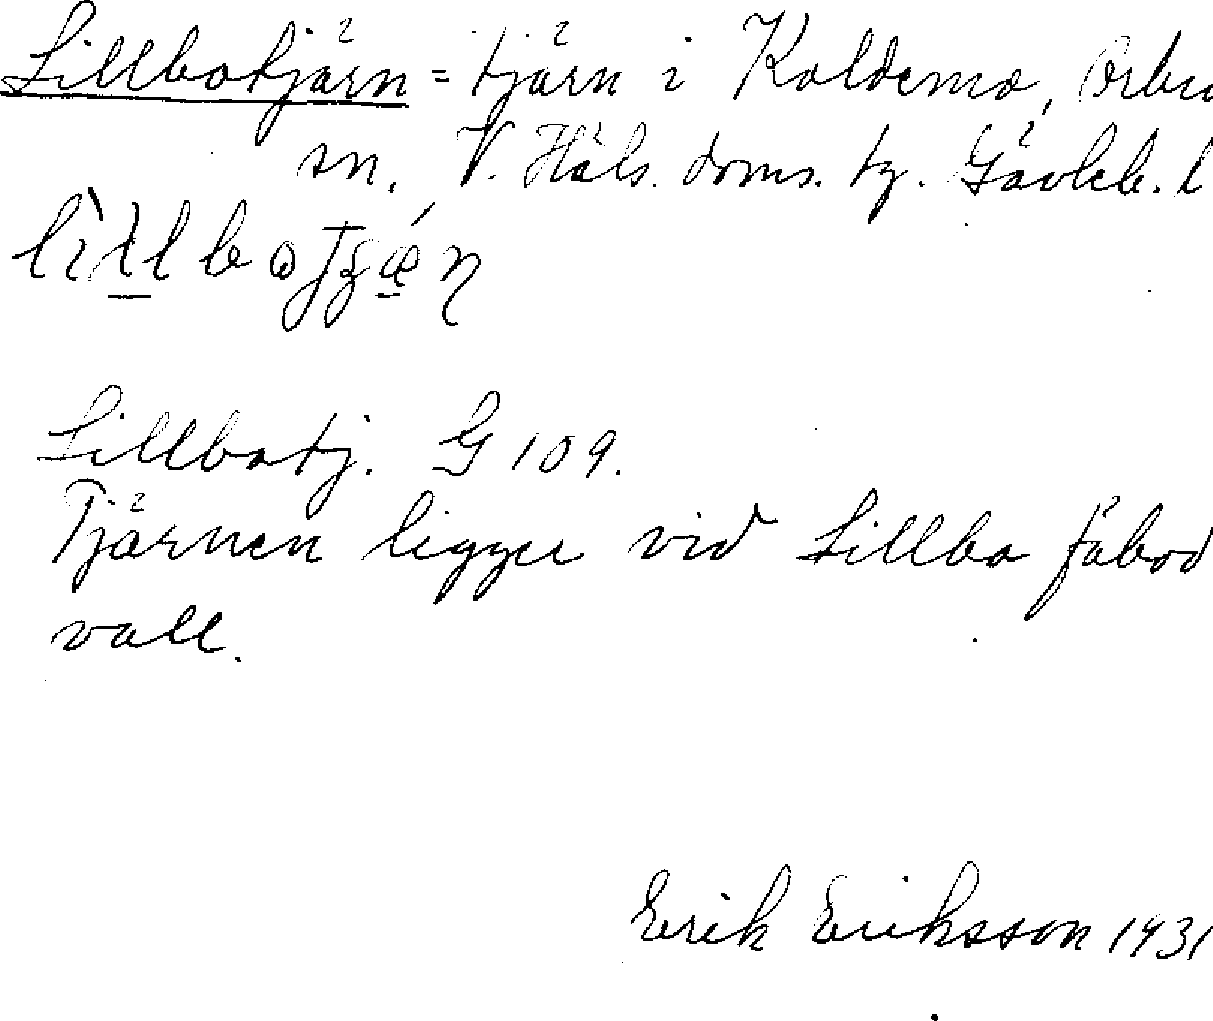 Lillbotjärn = tjärn i Koldemo, Arbrå
sn. V. Häls. doms. tg. Gävleb. l
Lillbotj. G 109.
Tjärnen ligger vid Lillbo fäbod
vall.
Erik Eriksson 1931